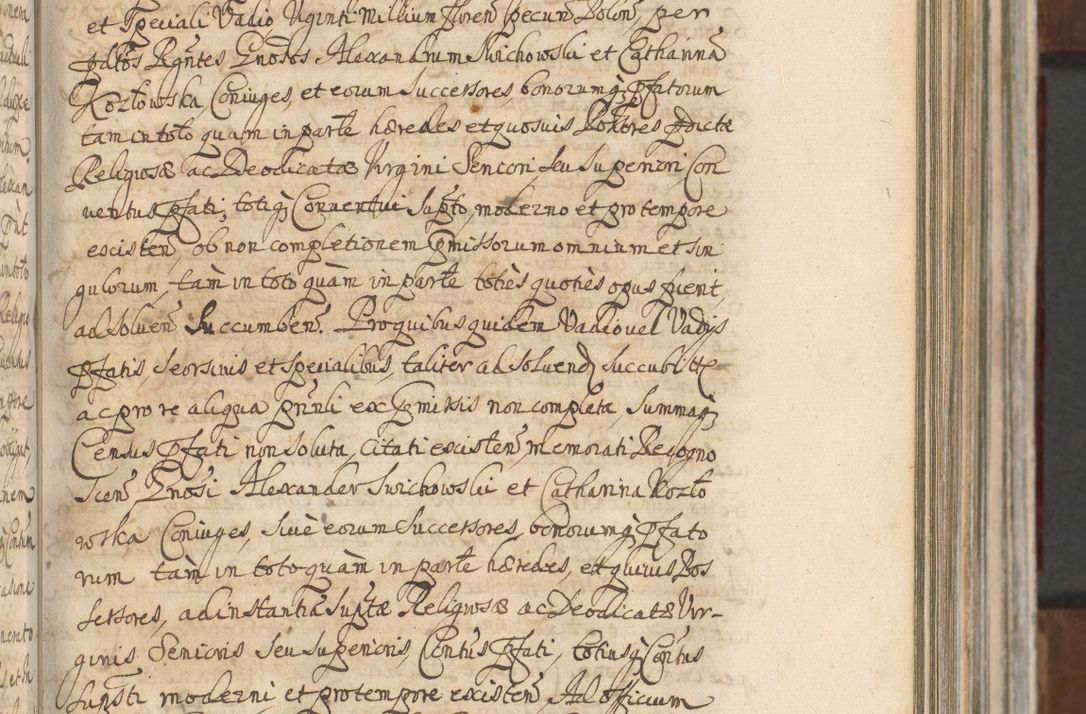 et speciali Vadio Viginti Millium floren̄ pecun̄ Polon̄, per
pdtōs Rgn̄tes Gnōsōs Alexandrum Swichowski et Catharinā
Kozłowska, Coniuges, et eorum Successores, bonorumq; pfatorum
tam in toto quam in parte hæredes et quosuis Possōres pdictæ
Religiosæ ac Deodicatæ Virgini Seniori, seu Superiori, Con
uentus pfati, totiq; Conuentui Supto, moderno et pro tempore
existen̄, ob non completionem Præmissorum omnium et sin
gulorum, tàm in toto quàm in parte toties quoties opus fuerit,
ad soluen̄ Succumben̄. Pro quibus quidem Vadio uel Vadijs
pfatis, seorsiuis et specialibus, taliter ad soluend̄ Succubitte
ac pro re aliqua pn̄nli ex Præmissis non completa, Summaq;
Census pfati non soluta, Citati existen̄, memorati Recogno
scen̄ Gnōsi Alexander Swichowski et Catharina Kozło
wska Coniuges, Siuè eorum Successores, bonorumq; pfato
rum tàm in toto quàm in parte hæredes, et quiuis Pos
sessores, ad instantiā Suptæ Religiosæ ac Deodicatæ Vir-
ginis Senioris seu superioris, Cōntus pfati, totiusq; Cōntus
Supsti moderni et pro tempore existen̄, Ad officium